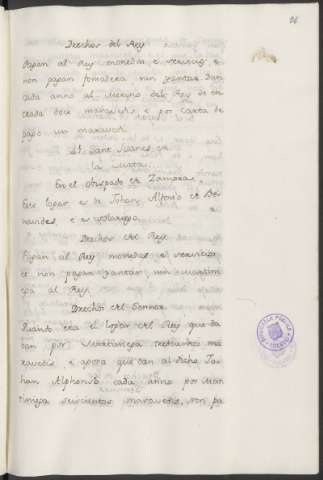 26
Drechos del Rey
Pagan al Rey monedas e servicios e
non pagan fonsadera nin yantar dan
cada anno al Merino del Rey de en
trada doce maravedis e por carta de
pago un maravedi.
Sant Juanes ça
la Mata.
En el obispado de Zamora.
Este logar es de Johan Alfonso de Be
navides, e es
Drechos del Rey
Pagan al Rey monedas e servicios
e non pagan yantar, nin martini
ega al Rey.
Drechos del Sennor
Quando era el logar del Rey que da
ban por Martiniega trescientos ma
ravedis e agora que dan al dicho Jo
han Alphonso cada anno por Mar
tiniega seiscientos maravedis, non pa
BIBLIOTECA PUBLICA